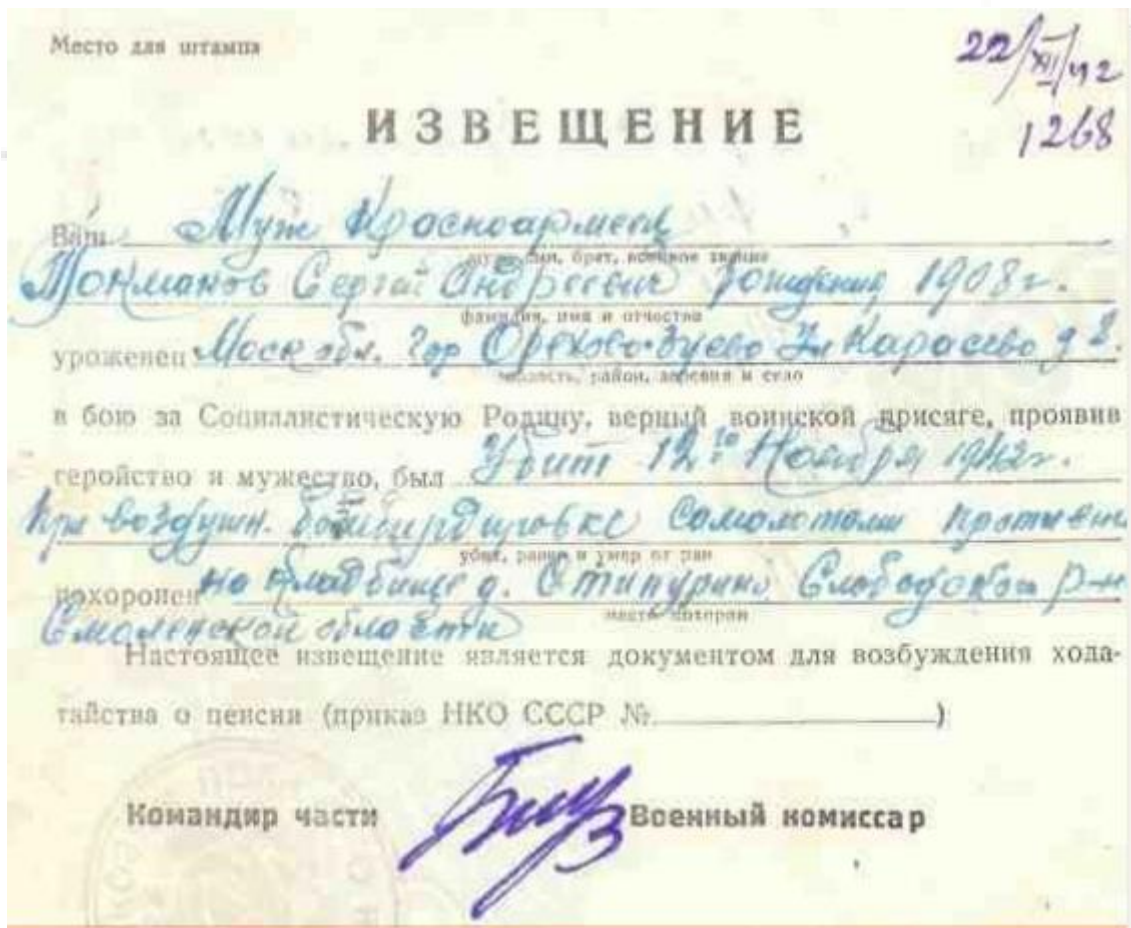 Место для штампа
22/XII/42
1268
ИЗВЕЩЕНИЕ
Ваш Муж Красноармеец
муж, сын, брат, военное звание
Токманов Сергей Андреевич рождения 1908г.
фамилия, имя и отчество
уроженец Моск обл. гор Орехово-Зуево Ул Карасево д 2.
область, район, деревня и село
в бою за Социалистическую Родину, верный воинской присяге, проявив
геройство и мужество, был Убит 12го Ноября 1942г.
При воздушн. бомбардировке самолетами противн
убит, ранен и умер от ран
похоронен на кладбище д. Слободской р-н
место похорон
Смоленской области
Настоящее извещение является документом для возбуждения хода-
тайства о пенсии (приказ НКО СССР № )
Командир части Военный комиссар